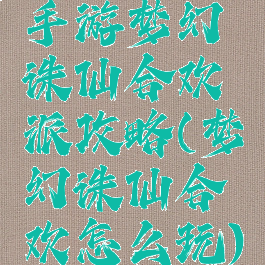 手游梦幻
诛仙合欢
派攻略(梦
幻诛仙合
欢怎么玩)